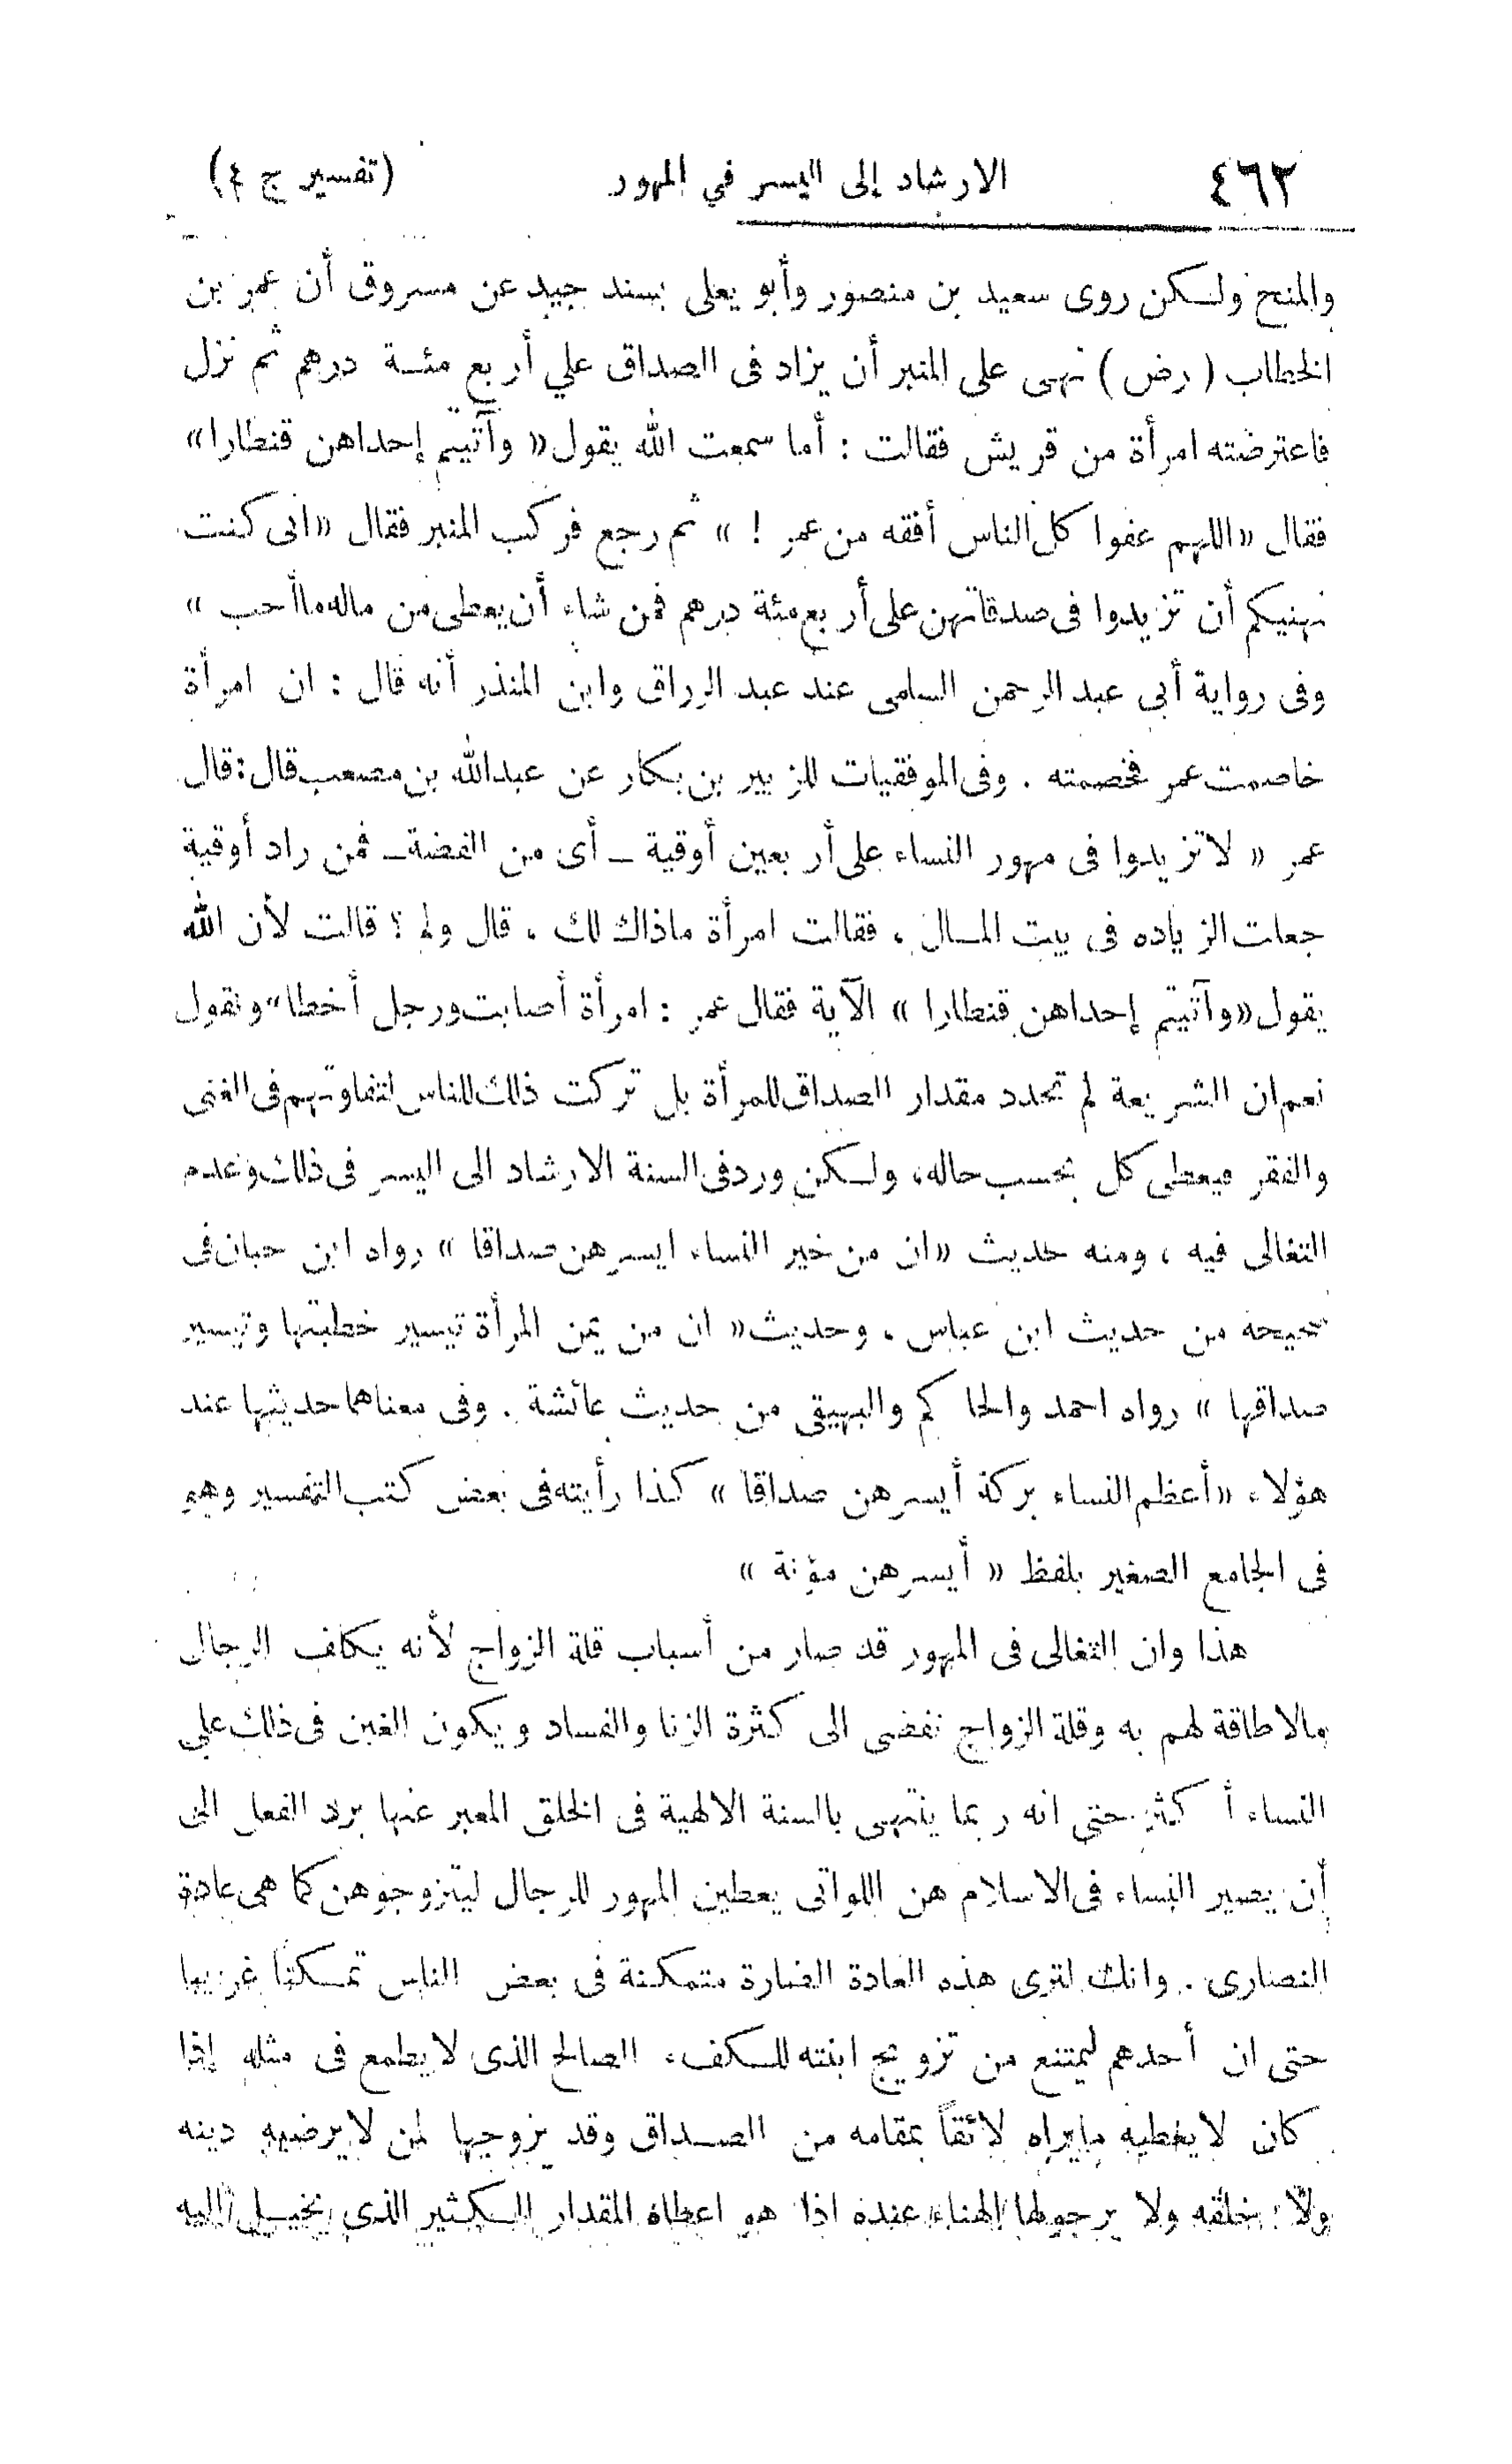 ٤٦٢ الارشاد إلى اليسر في المهور (تفسير ج ٤)
والمنح ولكن روى سعيد بن منصور وأبو يعلى بسند جيد عن مسروق أن عمر بن
الخطاب (رض) نهى على المنبر أن يزاد فى الصداق علي أربع مئة درهم ثم نزل
فاعترضته امرأة من قريش فقالت : أما سمعت الله يقول « وآتيتم إحداهن قنطارا»
فقال «اللهم عفوا كل الناس أفقه من عمر ! » ثم رجع فركب المنبر فقال «انى كنت
نهيتكم أن تزيدوا فى صدقاتهن على أربع مئة درهم فمن شاء أن يعطى من ماله ماأحب »
وفى رواية أبي عبد الرحمن السلمى عند عبد الرزاق وابن المنذر أنه قال : ان امرأة
خاصمت عمر فخصمته . وفى الموفقيات للزبير بن بكار عن عبدالله بن مصعب قال : قال
عمر « لاتزيدوا فى مهور النساء على أربعين أوقية ــ أى من الفضة ــ فمن زاد أوقية
جعلت الزياده فى بيت المال ، فقالت امرأة ماذاك لك ، قال ولم ؟ قالت لأن الله
يقول «وآتيتم إحداهن قنطارا » الآية فقال عمر : امرأة أصابت ورجل أخطا" ونقول
نعم ان الشريعة لم تحدد مقدار الصداق للمرأة بل تركت ذلك للناس لتفاوتهم فى الغنى
والفقر فيعطى كل بحسب حاله، ولكن ورد فى السنة الارشاد الى اليسر فى ذلك وعدم
التغالى فيه ، ومنه حديث «ان من خير النساء ايسرهن صداقا » رواه ابن حبان فى
صحيحه من حديث ابن عباس ، وحديث « ان من يمن المرأة تيسير خطبتها وتيسير
صداقها » رواه احمد والحاكم والبيهقى من حديث عائشة . وفى معناهما حديثها عند
هؤلاء «أعظم النساء بركة أيسرهن صداقا » كذا رأيته فى بعض كتب التفسير وهو
فى الجامع الصغير بلفظ « أيسرهن مؤنة »
هذا وان التغالى فى المهور قد صار من أسباب قلة الزواج لأنه يكلف الرجال
مالاطاقة لهم به وقلة الزواج تفضى الى كثرة الزنا والفساد ويكون الغبن فى ذلك علي
النساء أكثر حتى انه ربما ينتهى بالسنة الالهية فى الخلق المعبر عنها برد الفعل الى
أن يصير النساء فى الاسلام هن اللواتى يعطين المهور للرجال ليتزوجوهن كما هى عادة
النصارى . وانك لترى هذه العادة الضارة متمكنة فى بعض الناس تمكنا غريبا
حتى ان أحدهم ليمتنع من تزويج ابنته للكفء الصالح الذى لا يطمع فى مثله إذا
كان لا يعطيه مايراه لائقاً بمقامه من الصداق وقد يزوجها لمن لا يرضيه دينه
ولا خلقه ولا يرجو لها الهناء عنده اذا هو اعطاه المقدار الكثير الذى يخيل اليه